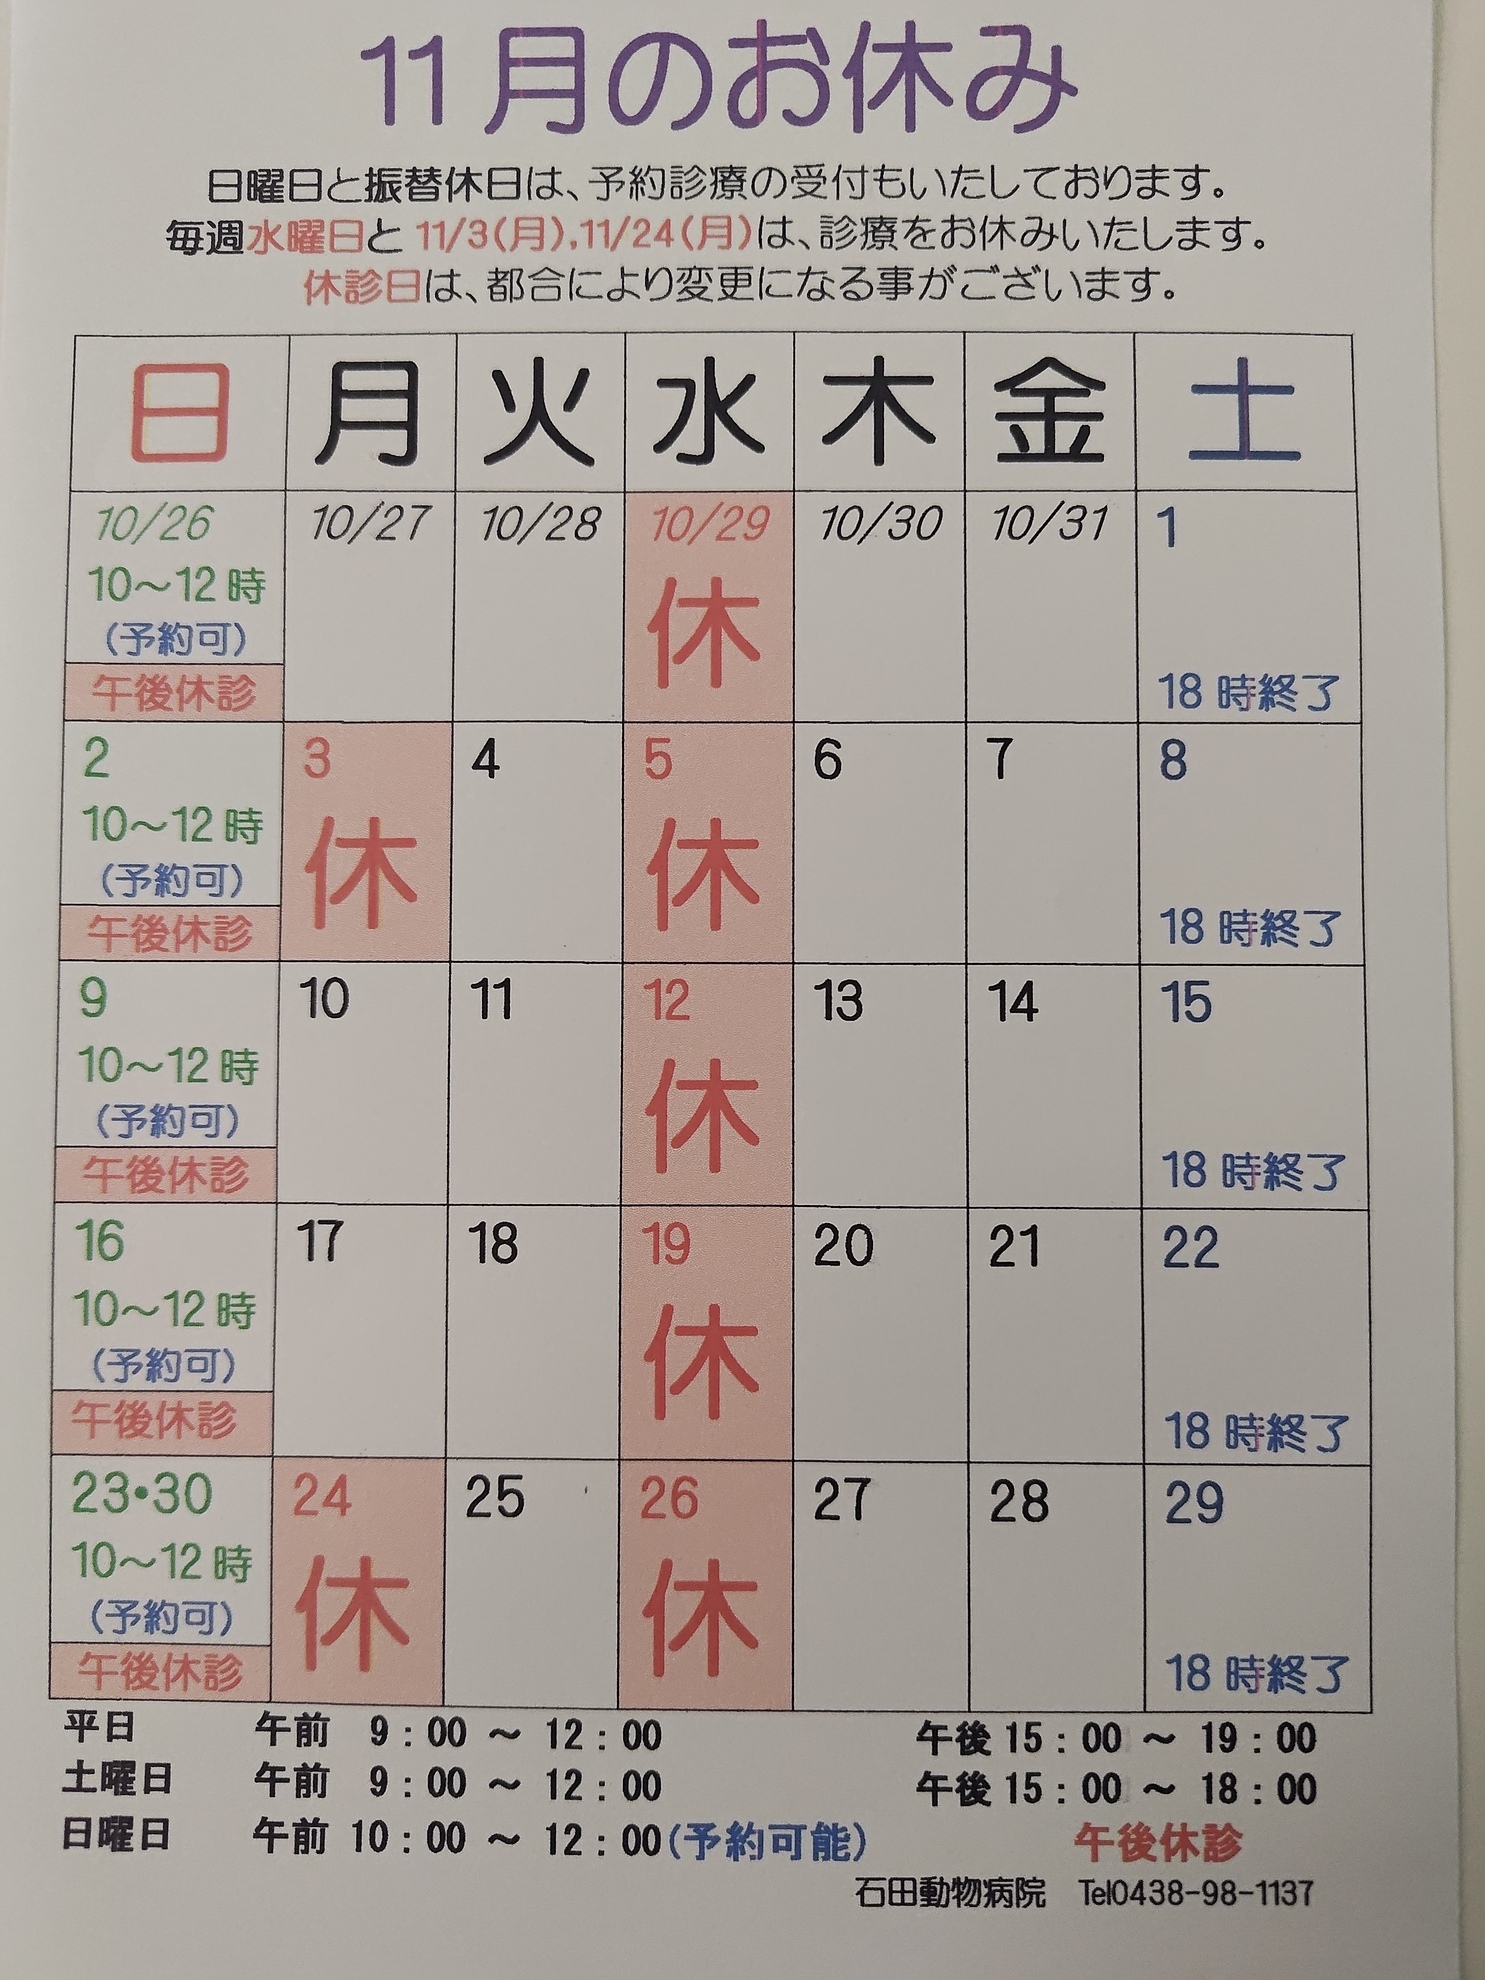 11月のお休み
日曜日と振替休日は、予約診療の受付もいたしております。
毎週水曜日と11/3(月),11/24(月)は、診療をお休みいたします。
休診日は、都合により変更になる事がございます。
日 月 火 水 木 金 土
10/26 10/27 10/28 10/29 10/30 10/31 1
10～12時
(予約可) 休
午後休診 18時終了
2 3 4 5 6 7 8
10～12時
(予約可) 休 休
午後休診 18時終了
9 10 11 12 13 14 15
10～12時
(予約可) 休
午後休診 18時終了
16 17 18 19 20 21 22
10～12時
(予約可) 休
午後休診 18時終了
23•30 24 25 26 27 28 29
10～12時
(予約可) 休 休
午後休診 18時終了
平日 午前 9：00 ～ 12：00 午後15：00 ～ 19：00
土曜日 午前 9：00 ～ 12：00 午後15：00 ～ 18：00
日曜日 午前 10：00 ～ 12：00(予約可能) 午後休診
石田動物病院 Tel0438-98-1137